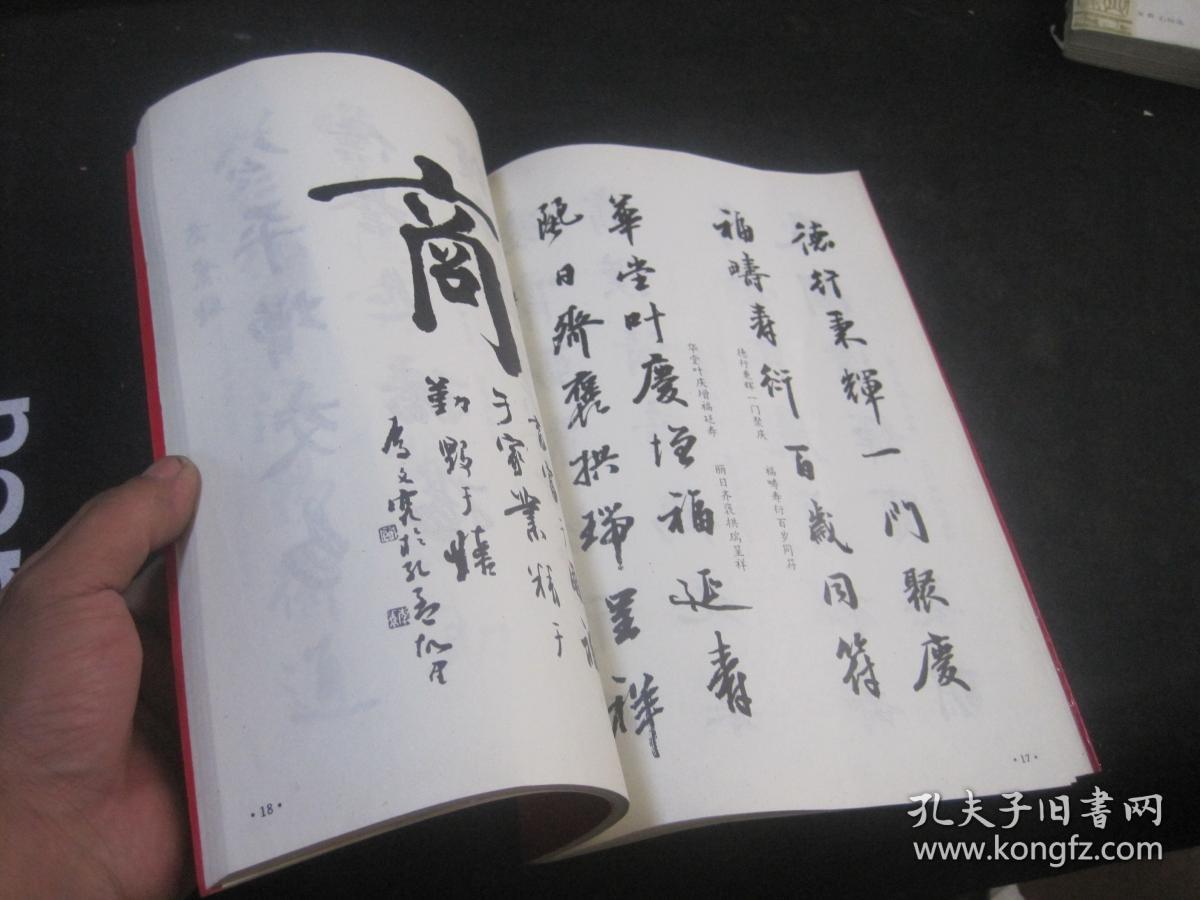 德行秉輝一門聚慶
福疇寿衍百歲同符
德行秉辉一门聚庆
福畴寿衍百岁同符
華堂叶慶增福延壽
麗日齊襃拱瑞呈祥
华堂叶庆增福延寿
丽日齐襃拱瑞呈祥
·17·
商
于家業精于
勤毀于惰
·18·
孔夫子旧書网
www.kongfz.com